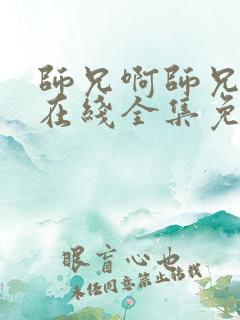 師兄啊師兄
在綫全集免
眼盲心也
未任同意禁止转载